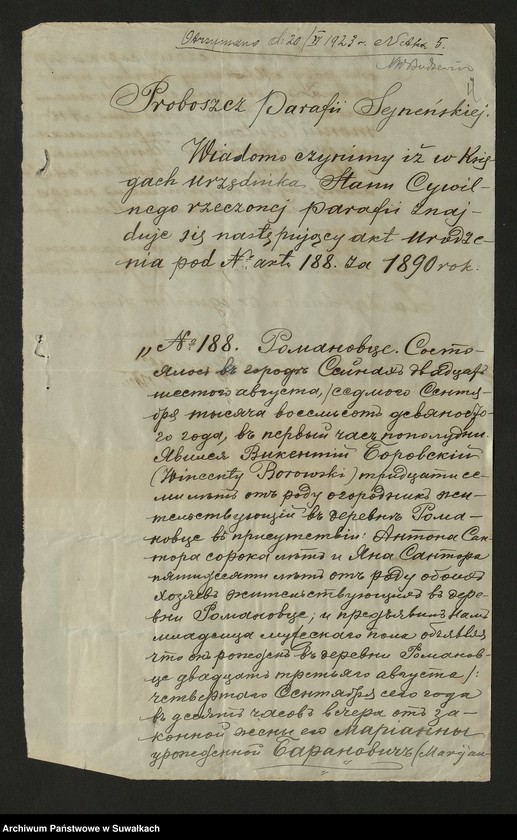 Otrzymano d. 20/VI 1923 r. № akt 5.
11
Proboszcz parafii Sejneńskiej.
Wiadomo czynimy iż w Księ-
gach urzędnika Stanu Cywil-
nego rzeczonej parafii znaj-
duje się następujący akt urodze-
nia pod № akt. 188. za 1890 rok.
„№ 188. Романовце. Состо-
ялось въ городѣ Сейнахъ двадцать
шестого августа, /седмого Сентя-
бря тысяча восемьсотъ девяносто-
го года, въ первый часъ пополудни.
Явился Викентій Боровскій
(Wincenty Borowski) тридцати се-
ми лѣтъ отъ роду огородникъ жи-
тельствующій въ деревнѣ Рома-
новце въ присутствіи: Антона Сан-
тора сорока лѣтъ и Яна Сантора
пятидесяти лѣтъ отъ роду обоихъ
хозяевъ жительствующихъ въ дере-
вни Романовце; и предъявилъ намъ
младенца мужескаго пола объявляя
что онъ рожденъ въ деревни Романов-
це двадцать третьяго августа /:
четвертаго Сентября сего года
въ десять часовъ вечера отъ за-
конной жены его Марианны
урожденной Барановичъ (Maryan-
Archiwum Państwowe w Suwałkach